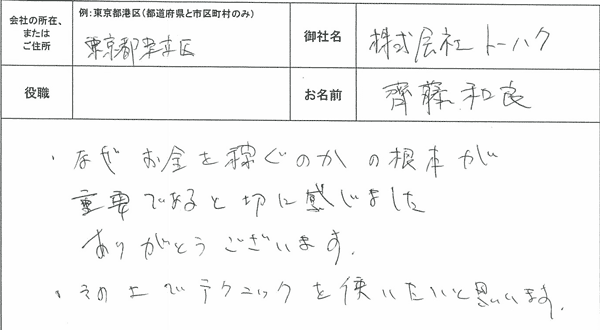 会社の所在、
または
ご住所
例：東京都港区（都道府県と市区町村のみ）
東京都墨田区
御社名
株式会社トーハク
役職
お名前
齊藤和良
・なぜお金を稼ぐのかの根本が
重要であると切に感じました
ありがとうございます。
・その上でテクニックを使いたいと思います。